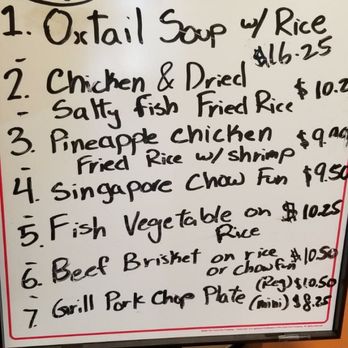 1. Oxtail Soup w/ Rice
$16.25
2. Chicken & Dried
Salty fish Fried Rice $10.2
3. Pineapple chicken
Fried Rice w/ shrimp
4. Singapore Chow Fun $9.50
5. Fish Vegetable on $10.25
Rice
6. Beef Brisket on rice $10.50
or chow fun
7. Grill Pork Chop Plate (Reg) $10.50
(mini) $8.25